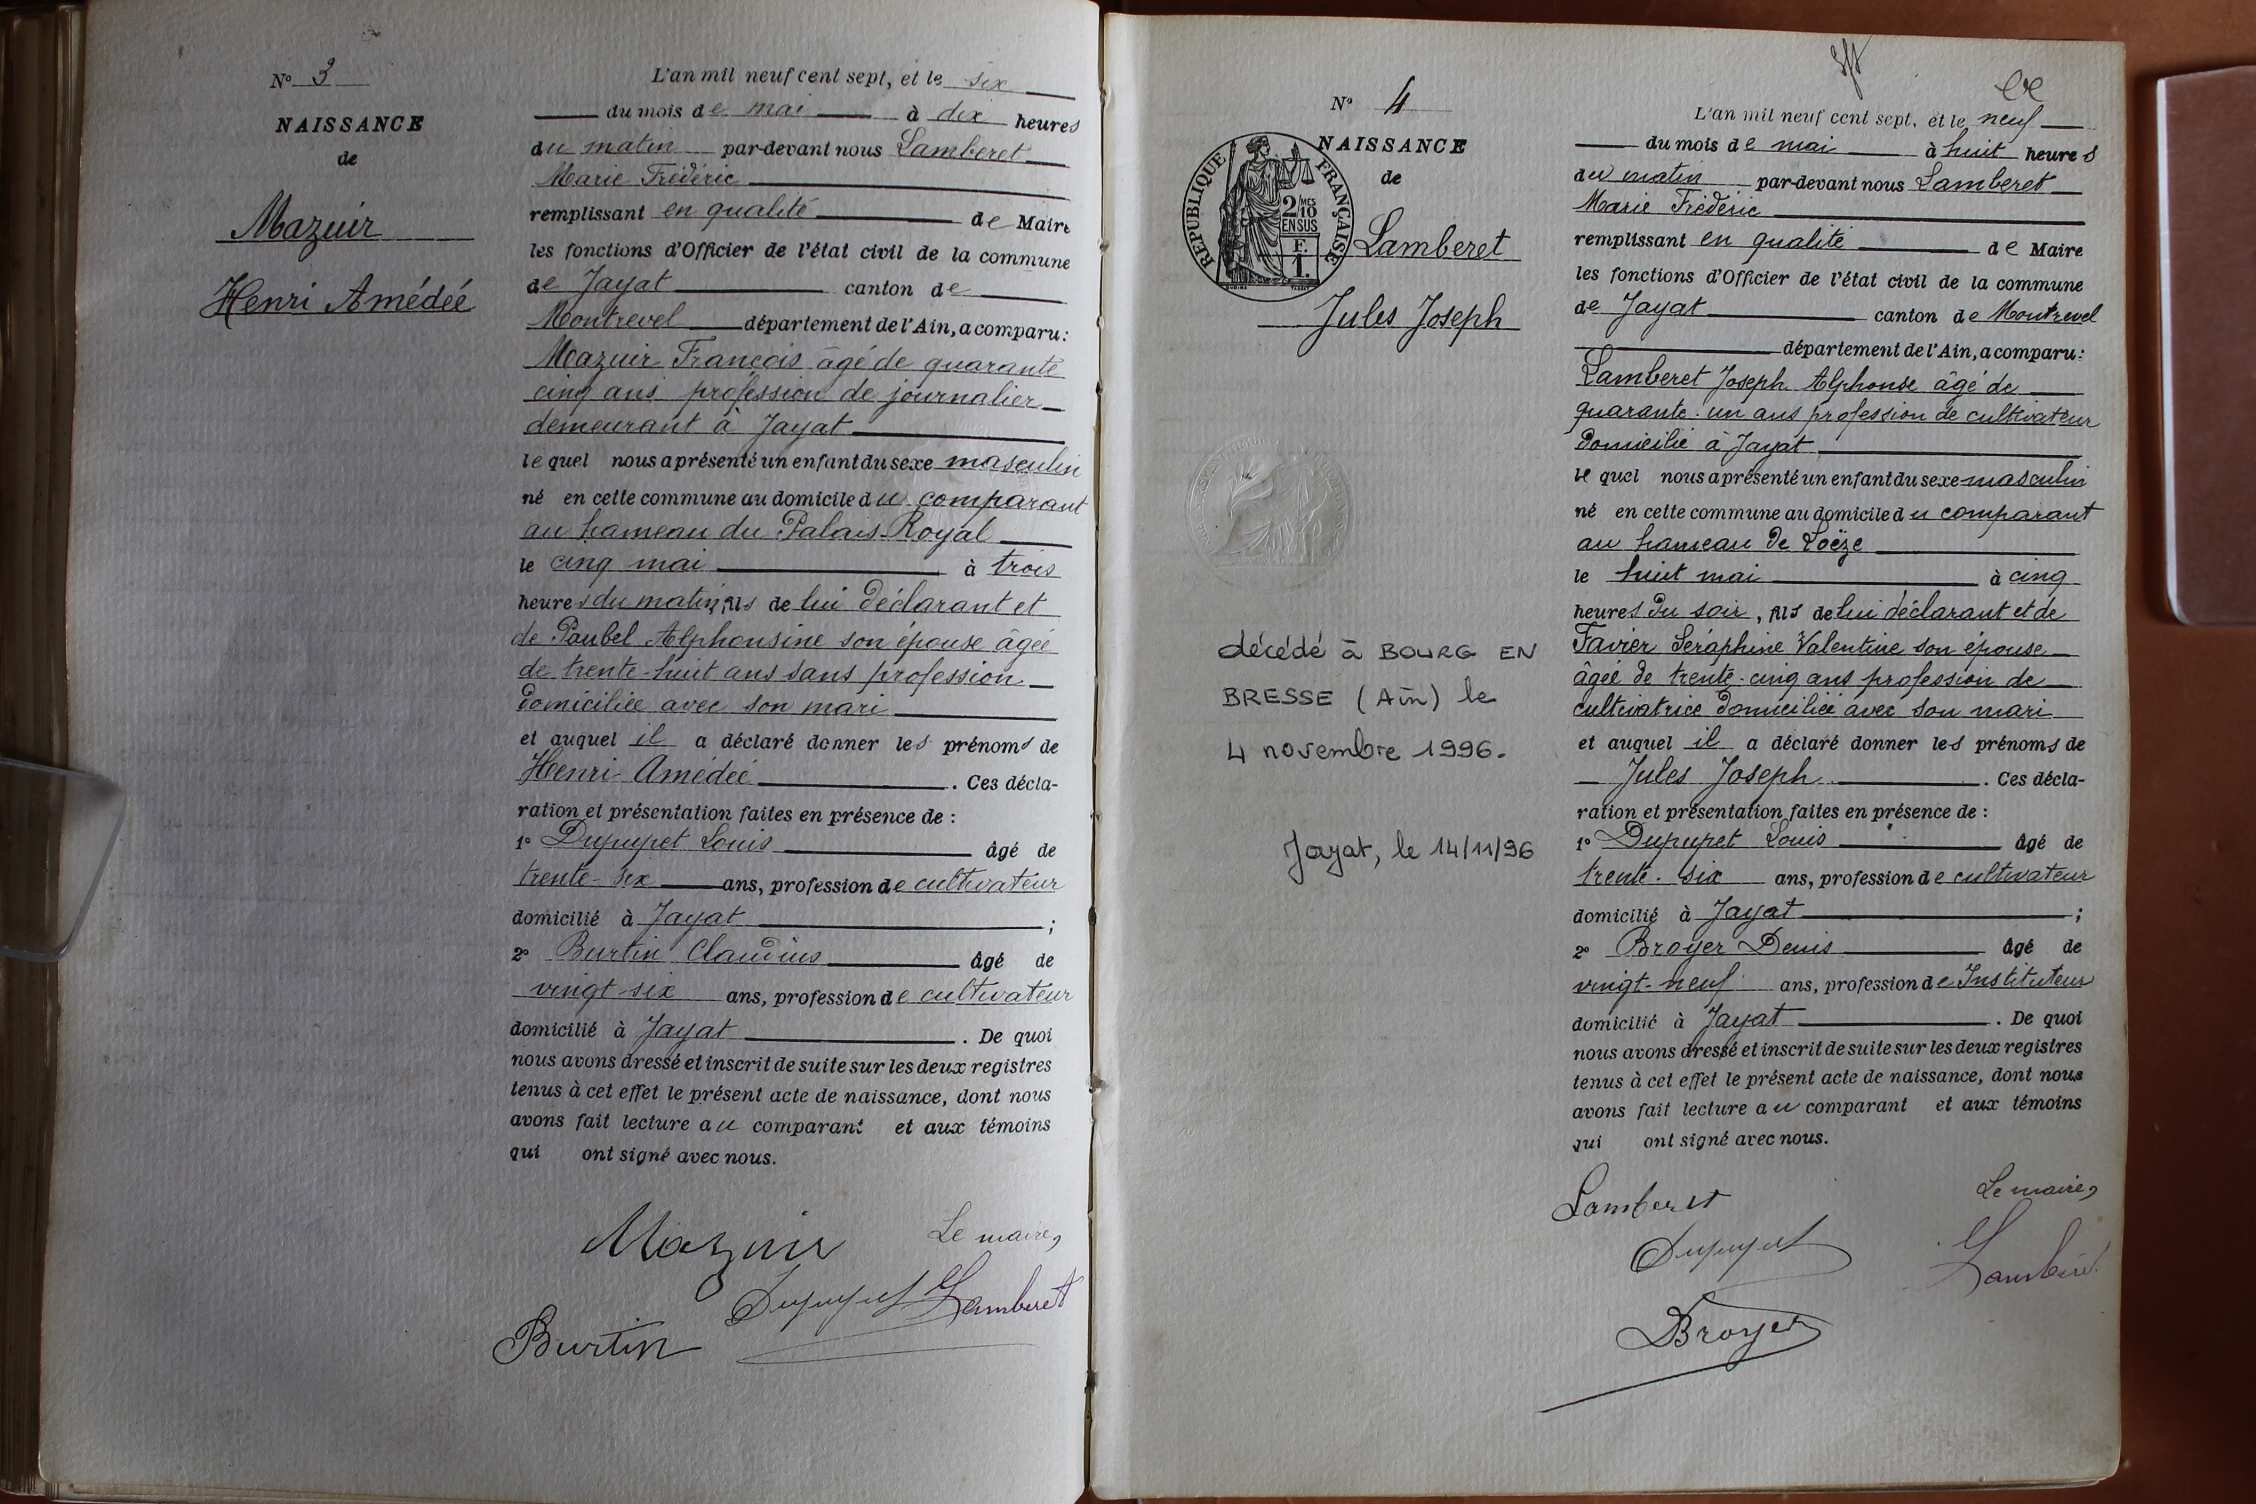 N° 3
NAISSANCE
de
Mazuir
Henri Amédéé
L'an mil neuf cent sept, et le six
du mois de mai à dix heures
du matin par-devant nous Lamberet
Marie Frédéric
remplissant en qualité de Maire
les fonctions d'Officier de l'état civil de la commune
de Jayat canton de
Montrevel département de l'Ain, a comparu:
Mazuir François âgé de quarante
cinq ans profession de journalier
demeurant à Jayat
le quel nous a présenté un enfant du sexe masculin
né en cette commune au domicile du comparant
au hameau du Palais-Royal
le cinq mai à trois
heures du matin, fils de lui déclarant et
de Paubel Alphonsine son épouse âgée
de trente-huit ans sans profession
domiciliée avec son mari
et auquel il a déclaré donner les prénoms de
Henri Amédéé. Ces décla-
ration et présentation faites en présence de :
1° Dupupet Louis âgé de
trente-six ans, profession de cultivateur
domicilié à Jayat ;
2° Burtin Claudius âgé de
vingt-six ans, profession de cultivateur
domicilié à Jayat. De quoi
nous avons dressé et inscrit de suite sur les deux registres
tenus à cet effet le présent acte de naissance, dont nous
avons fait lecture au comparant et aux témoins
qui ont signé avec nous.
Mazuir
Le maire,
Dupupet
Lamberet
Burtin
N° 4
NAISSANCE
de
RÉPUBLIQUE FRANÇAISE
2/10 MES
EN SUS
F.
1.
Lamberet
Jules Joseph
décédé à BOURG EN
BRESSE (Ain) le
4 novembre 1996.
Jayat, le 14/11/96
L'an mil neuf cent sept, et le neuf
du mois de mai à huit heures
du matin par-devant nous Lamberet
Marie Frédéric
remplissant en qualité de Maire
les fonctions d'Officier de l'état civil de la commune
de Jayat canton de Montrevel
département de l'Ain, a comparu:
Lamberet Joseph Alphonse âgé de
quarante-un ans profession de cultivateur
domicilié à Jayat
le quel nous a présenté un enfant du sexe masculin
né en cette commune au domicile du comparant
au hameau de Loëze
le huit mai à cinq
heures du soir, fils de lui déclarant et de
Favier Séraphine Valentine son épouse
âgée de trente-cinq ans profession de
cultivatrice domiciliée avec son mari
et auquel il a déclaré donner les prénoms de
Jules Joseph. Ces décla-
ration et présentation faites en présence de :
1° Dupupet Louis âgé de
trente-six ans, profession de cultivateur
domicilié à Jayat ;
2° Broyer Denis âgé de
vingt-neuf ans, profession de Instituteur
domicilié à Jayat. De quoi
nous avons dressé et inscrit de suite sur les deux registres
tenus à cet effet le présent acte de naissance, dont nous
avons fait lecture au comparant et aux témoins
qui ont signé avec nous.
Lamberet
Le maire,
Dupupet
Lamberet
Broyer